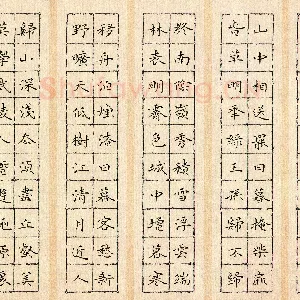 山中相送罷日暮掩柴扉
春草明年綠王孫歸不歸
終南陰嶺秀積雪浮雲端
林表明霽色城中增暮寒
移舟泊煙渚日暮客愁新
野曠天低樹江清月近人
歸山深淺去須盡丘壑美
莫學武陵人暫遊桃源裏